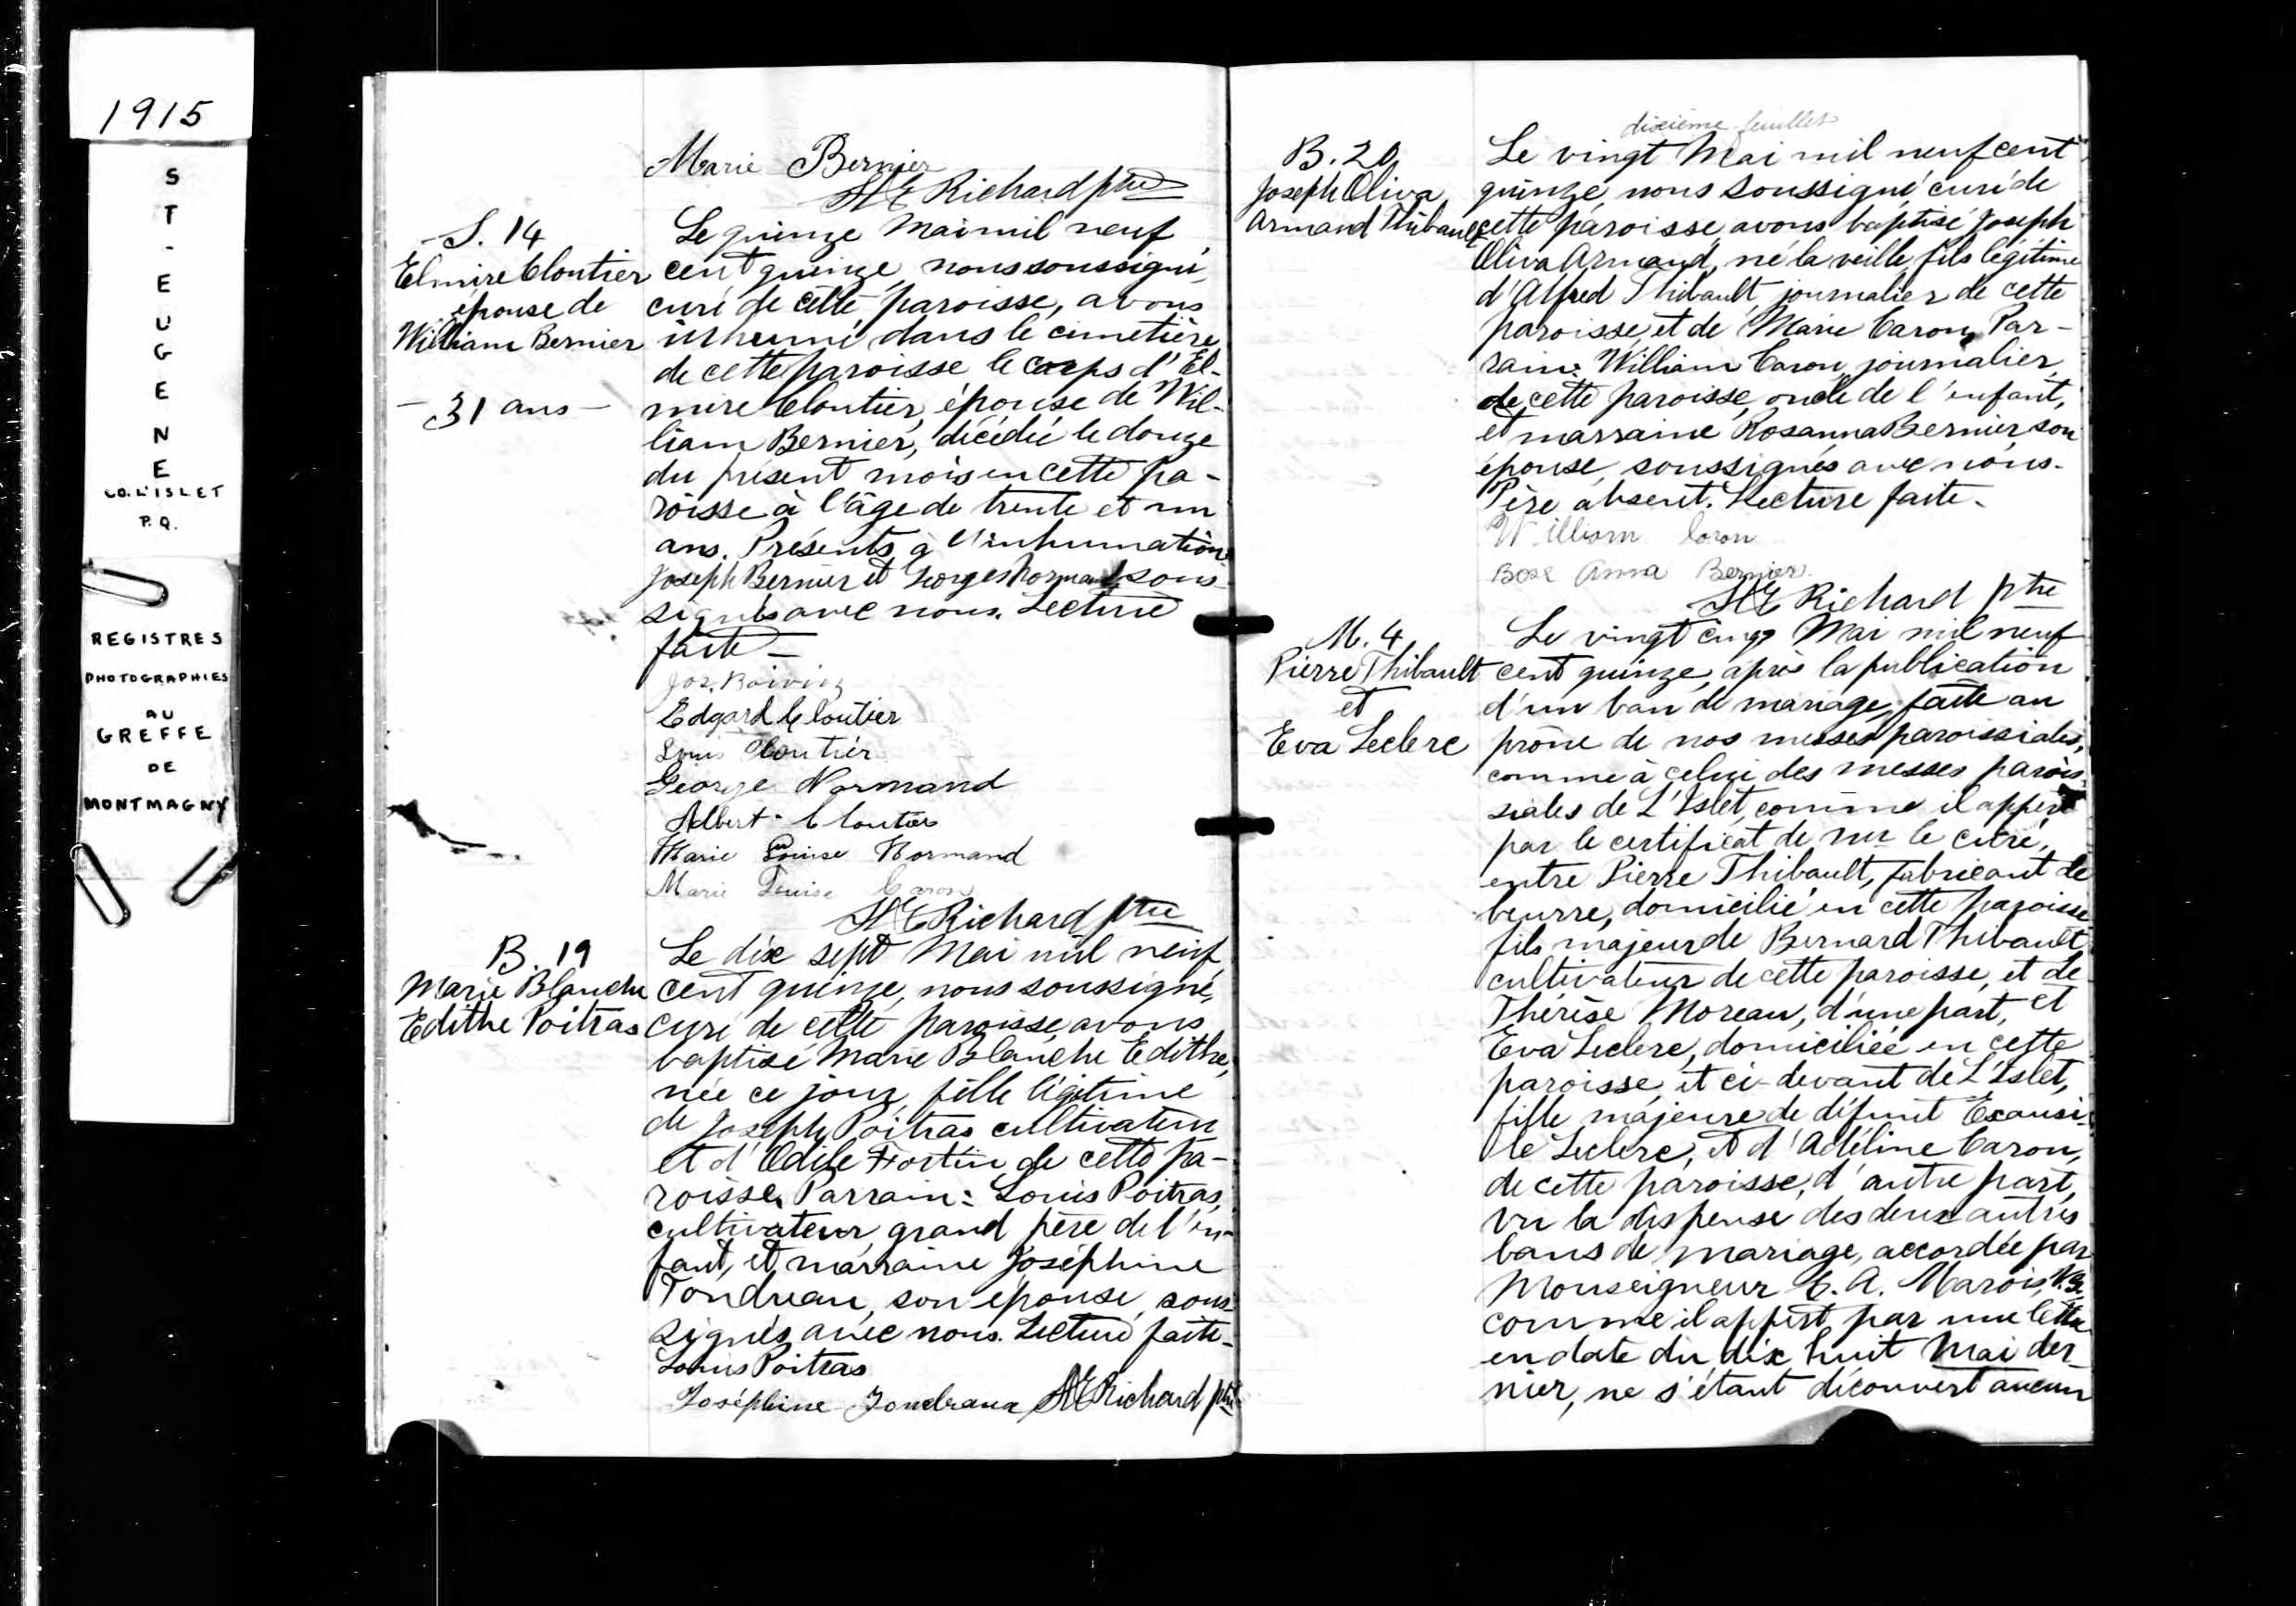 1915
ST-EUGENE
CO. L'ISLET
P.Q.
REGISTRES
PHOTOGRAPHIES
AU
GREFFE
DE
MONTMAGNY
Marie Bernier
Richard ptre
S. 14
Elmire Cloutier
épouse de
William Bernier
- 31 ans -
Le quinze Mai mil neuf
cent quinze, nous soussigné,
curé de cette paroisse, avons
inhumé dans le cimetière
de cette paroisse le corps d'El-
mire Cloutier, épouse de Wil-
liam Bernier, décédée le douze
du présent mois en cette pa-
roisse à l'âge de trente et un
ans. Présents à l'inhumation
Joseph Bernier et Georges Normand, sous-
signés avec nous. Lecture
faite -
Jos. Boivin
Edgard Cloutier
Louis Cloutier
George Normand
Albert Cloutier
Marie Louise Normand
Marie Louise Caron
Richard ptre
B. 19
Marie Blanche
Edithe Poitras
Le dix sept Mai mil neuf
cent quinze, nous soussigné,
curé de cette paroisse, avons
baptisé Marie Blanche Edithe,
née ce jour, fille légitime
de Joseph Poitras cultivateur
et d'Odile Fortin de cette pa-
roisse. Parrain: Louis Poitras,
cultivateur, grand père de l'en-
fant, et marraine Joséphine
Tondreau, son épouse, sous-
signés avec nous. Lecture faite-
Louis Poitras
Joséphine Tondreau Richard ptre
dixième feuillet
B. 20
Joseph Oliva
Armand Thibault
Le vingt Mai mil neuf cent
quinze, nous soussigné, curé de
cette paroisse, avons baptisé Joseph
Oliva Armand, né la veille, fils légitime
d'Alfred Thibault, journalier de cette
paroisse, et de Marie Caron, Par-
rain: William Caron, journalier,
de cette paroisse, oncle de l'enfant,
et marraine Rosanna Bernier, son
épouse, soussignés avec nous.
Père absent. Lecture faite.
William Caron
Rose Anna Bernier
Richard ptre
M. 4
Pierre Thibault
et
Eva Leclerc
Le vingt cinq Mai mil neuf
cent quinze, après la publication
d'un ban de mariage, faite au
prône de nos messes paroissiales,
comme à celui des messes parois-
siales de L'Islet, comme il appert
par le certificat de Mr le curé,
entre Pierre Thibault, fabricant de
beurre, domicilié en cette paroisse
fils majeur de Bernard Thibault
cultivateur de cette paroisse, et de
Thérèse Moreau, d'une part, et
Eva Leclerc, domiciliée en cette
paroisse, et ci-devant de L'Islet,
fille majeure de défunt
Leclerc, et d'Adéline Caron,
de cette paroisse, d'autre part,
vu la dispense des deux autres
bans de mariage, accordée par
Monseigneur C. A. Marois, V.G.
comme il appert par une lettre
en date du dix huit Mai der-
nier, ne s'étant découvert aucun